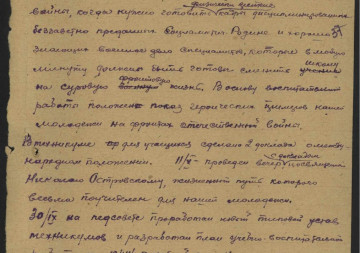 физически крепкие
войны, когда нужно готовить кадры дисциплинированные
безгранично преданные Социалистич. Родине и хорошо
знающих военное дело специалистов, которые в любую
минуту должны быть готовы сменить школу
на суровую фронтовую жизнь. В основу воспитательной
работы положен показ героических примеров нашей
молодежи на фронтах отечественной войны.
В техникуме для учащихся сделано 2 доклада о между-
народном положении. 11/X проведен вечер посвященный
Николаю Островскому, жизненный путь которого
весьма поучителен для нашей молодежи.
30/IX на педсовете проработан новый типовой устав
техникумов и разработан план учебно-воспитательной